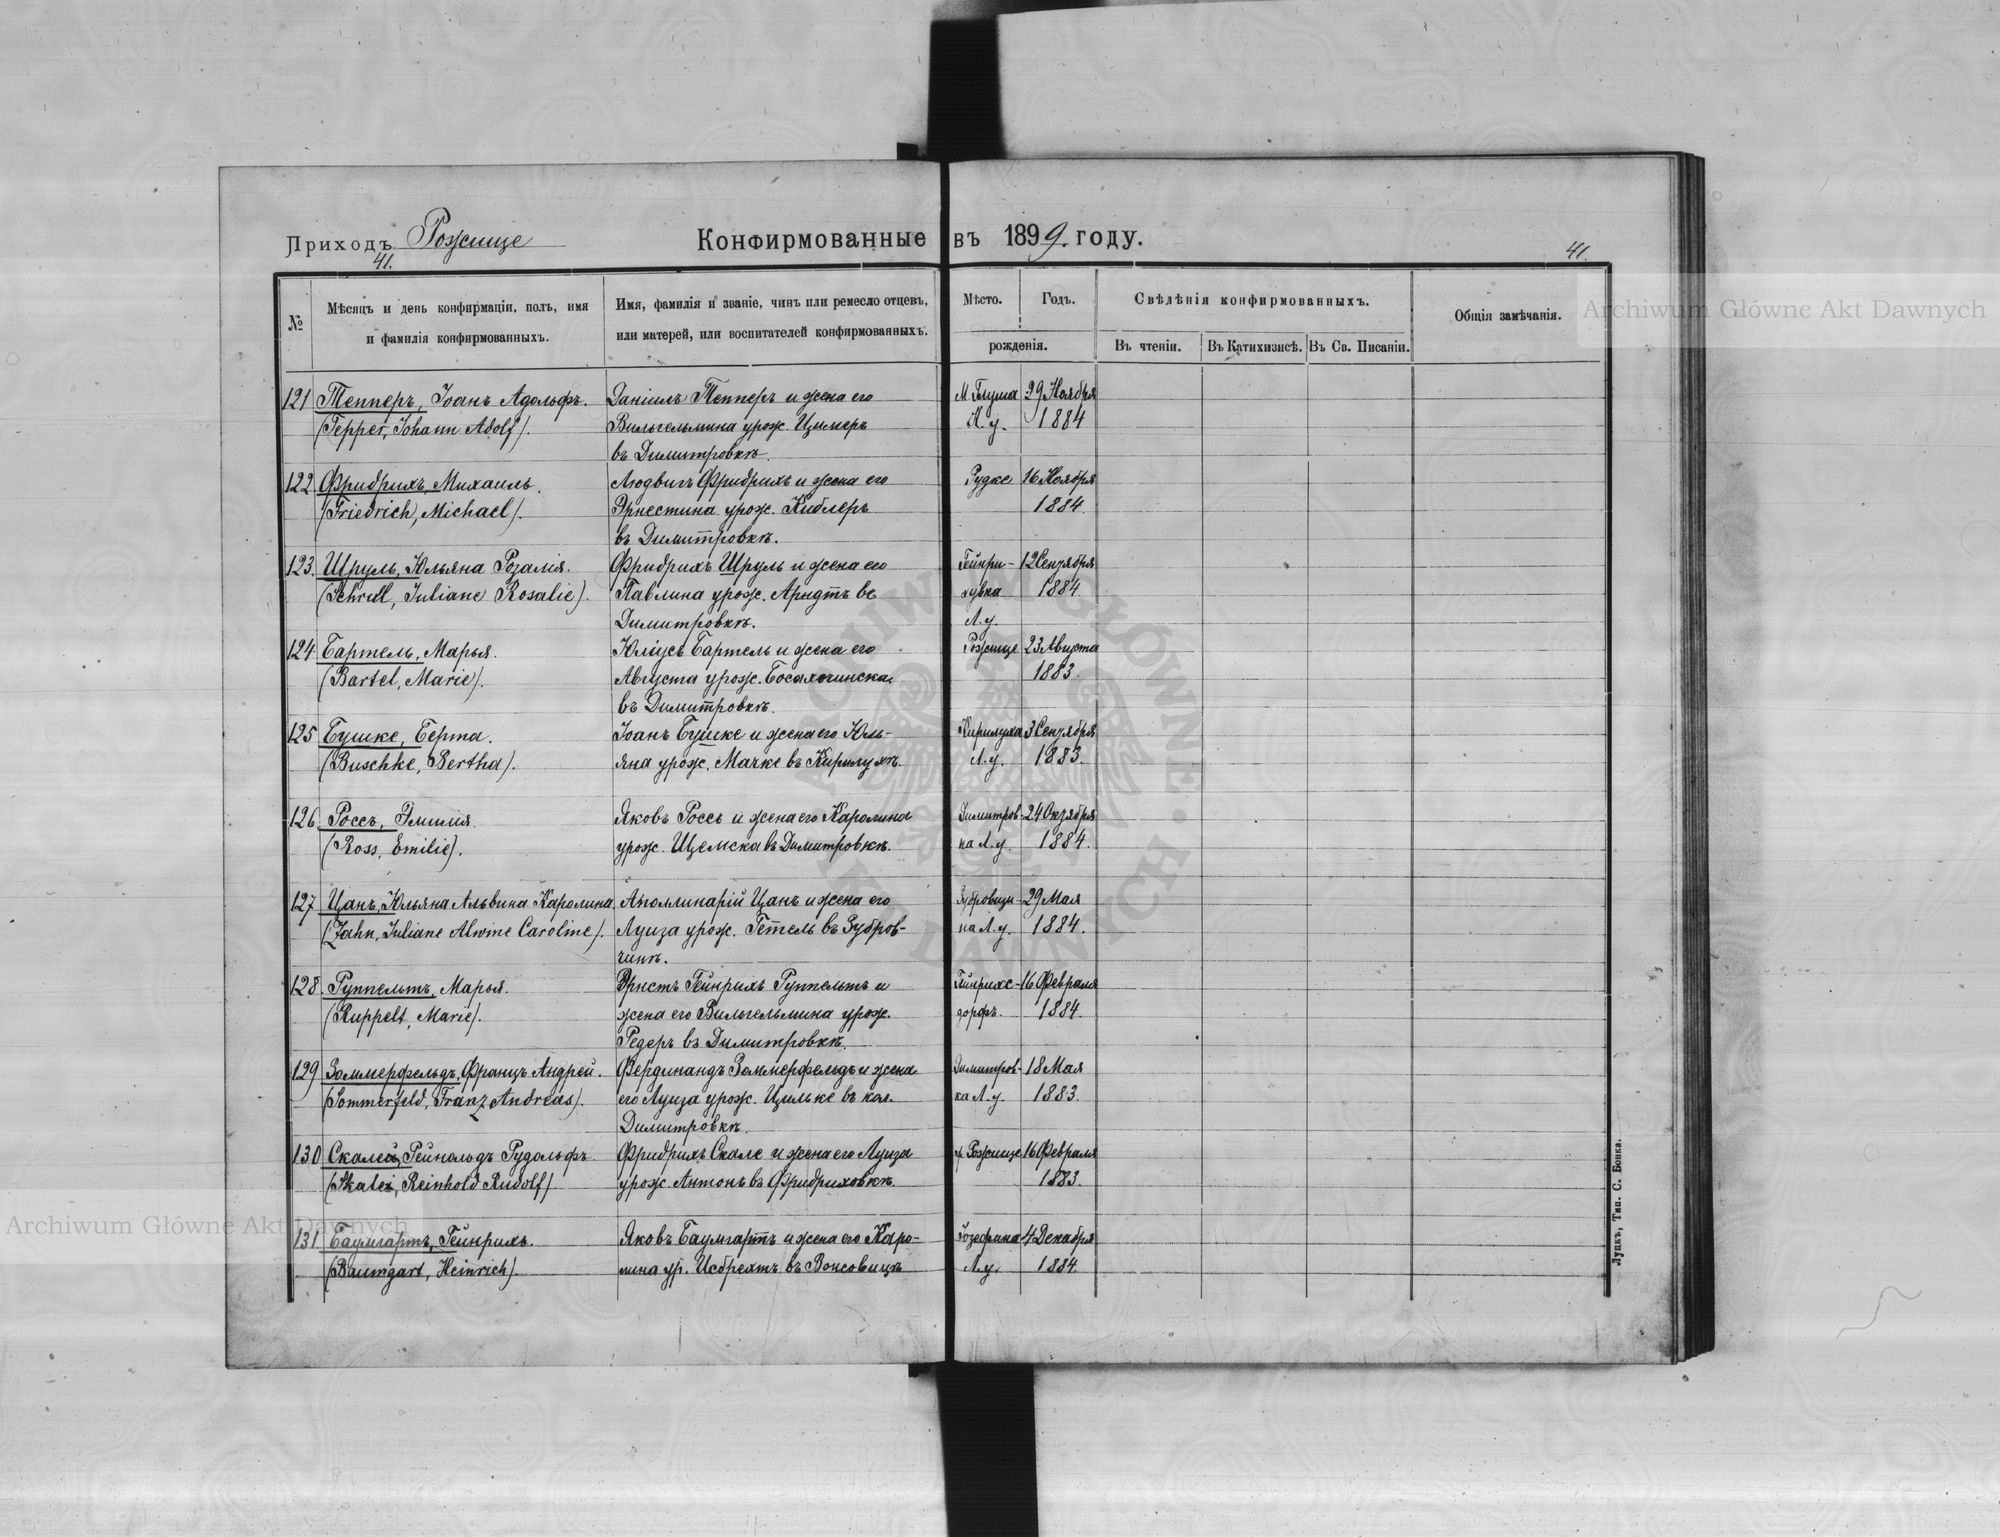 Приходъ Рожище Конфирмованные въ 1899. году.
41. 41.
№ Мѣсяцъ и день конфирмаціи, полъ, имя и фамилія конфирмованныхъ. Имя, фамилія и званіе, чинъ или ремесло отцевъ, или матерей, или воспитателей конфирмованныхъ. Мѣсто. Годъ. рожденія. Свѣдѣнія конфирмованныхъ. Въ чтеніи. Въ Катихизисѣ. Въ Св. Писаніи. Общія замѣчанія.
121 Тепперъ, Іоанъ Адольфъ. Даніилъ Тепперъ и жена его М Глуша 29 Ноября
(Tepper, Johann Adolf). Вильгельмина урож. Цимеръ К. у. 1884
въ Димитровкѣ.
122 Фридрихъ, Михаилъ. Людвигъ Фридрихъ и жена его Рудке 16 Ноября
(Friedrich, Michael). Эрнестина урож. Киблеръ 1884.
въ Димитровкѣ.
123. Шруль, Юльяна Розалія. Фридрихъ Шруль и жена его Гейнри- 12 Сентября
(Schrul, Juliane Rosalie). Павлина урож. Арндтъ въ хувка 1884
Димитровкѣ. Л. у.
124 Бартель, Марья. Юліусъ Бартель и жена его Рожище 23 Августа
(Bartel, Marie). Августа урож. 1883.
въ Димитровкѣ.
125 Бушке, Берта. Іоанъ Бушке и жена его Юль- Кирилуха 3 Сентября
(Buschke, Bertha). яна урож. Мачке въ Кирилухѣ. Л. у. 1883.
126 Россъ, Эмилія. Яковъ Россъ и жена его Каролина Димитров- 24 Октября
(Ross, Emilie). урож. Щемска въ Димитровкѣ. ка Л. у. 1884.
127 Цанъ, Юльяна Альвина Каролина Аполлинарій Цанъ и жена его Зубровщи- 29 Мая
(Zahn, Juliane Alwine Caroline). Луиза урож. Гетель въ Зубров- на Л. у. 1884.
чинѣ.
128 Руппельтъ, Марья. Эрнстъ Гейнрихъ Руппельтъ и Гейнрихс- 16 Февраля
(Ruppelt, Marie). жена его Вильгельмина урож. дорфъ. 1884.
Редеръ въ Димитровкѣ.
129 Зоммерфельдъ, Францъ Андрей. Фердинандъ Зоммерфельдъ и жена Димитров- 18 Мая
(Sommerfeld, Franz Andreas). его Луиза урож. Цильке въ кол. ка Л. у. 1883.
Димитровкѣ.
130 Скалей, Рейнольдъ Рудольфъ. Фридрихъ Скале и жена его Луиза Рожище 16 Февраля
(Skalei, Reinhold Rudolf). урож. Антонъ въ Фридриховкѣ. 1883.
131 Баумгартъ, Гейнрихъ. Яковъ Баумгартъ и жена его Каро- Іозефина 4 Декабря
(Baumgart, Heinrich). лина ур. Исбрехтъ въ Вонсовицѣ Л. у. 1884.
Луцкъ, Тип. С. Бонка.
Archiwum Główne Akt Dawnych
Archiwum Główne Akt Dawnych
ARCHIWUM GŁÓWNE AKT DAWNYCH